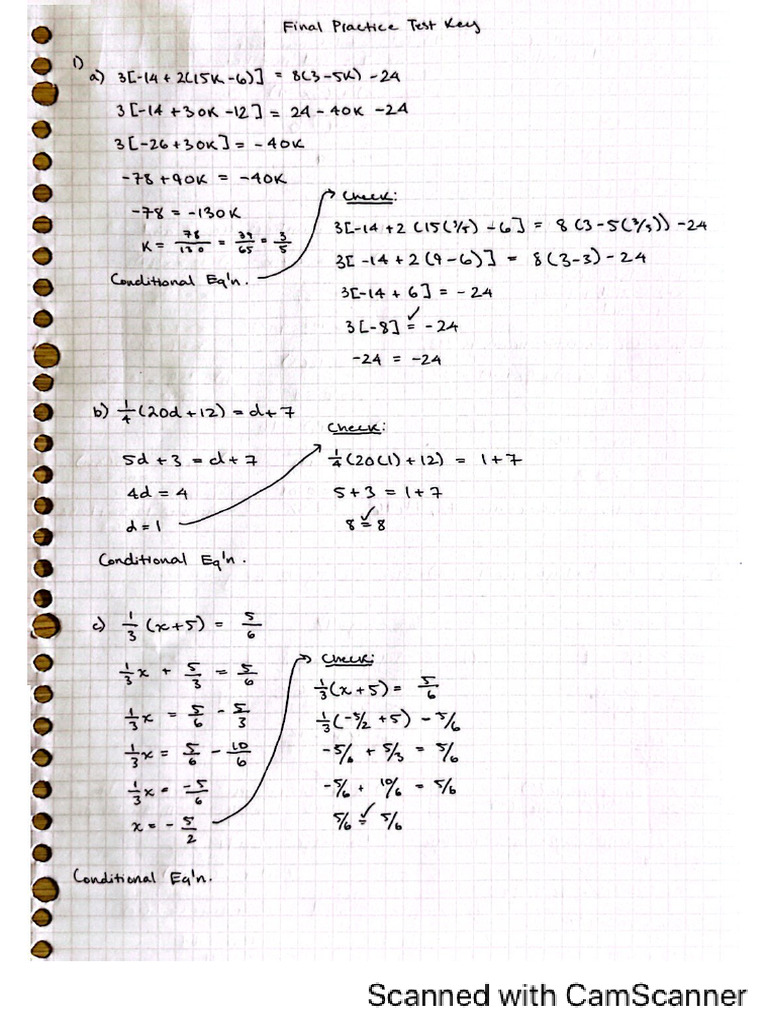 Final Practice Test Key
1)
a) 3[-14 + 2(15k - 6)] = 8(3 - 5k) - 24
3[-14 + 30k - 12] = 24 - 40k - 24
3[-26 + 30k] = -40k
-78 + 90k = -40k
-78 = -130k
k = 78/130 = 39/65 = 3/5
Conditional Eq'n.
Check:
3[-14 + 2 (15(3/5) - 6] = 8 (3 - 5(3/5)) - 24
3[-14 + 2(9 - 6)] = 8(3 - 3) - 24
3[-14 + 6] = -24
3[-8] =✓ -24
-24 = -24
b) 1/4 (20d + 12) = d + 7
5d + 3 = d + 7
4d = 4
d = 1
Conditional Eq'n.
Check:
1/4 (20(1) + 12) = 1 + 7
5 + 3 = 1 + 7
8 =✓ 8
c) 1/3 (x + 5) = 5/6
1/3 x + 5/3 = 5/6
1/3 x = 5/6 - 5/3
1/3 x = 5/6 - 10/6
1/3 x = -5/6
x = - 5/2
Conditional Eq'n.
Check:
1/3 (x + 5) = 5/6
1/3 (-5/2 + 5) - 5/6
-5/6 + 5/3 = 5/6
-5/6 + 10/6 = 5/6
5/6 =✓ 5/6
Scanned with CamScanner